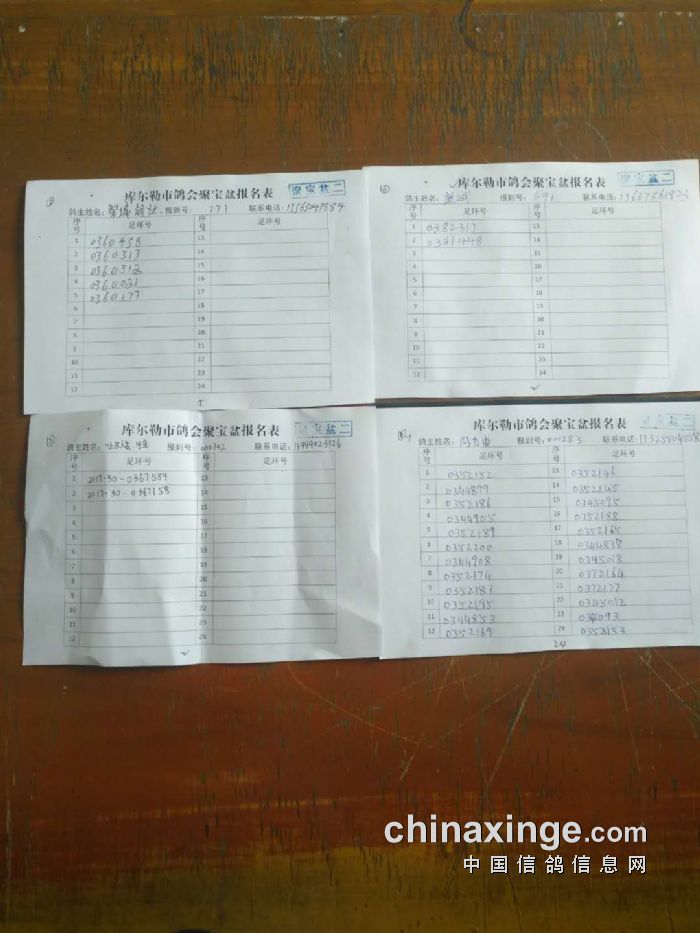 聚宝盆二
库尔勒市鸽会聚宝盆报名表
鸽主姓名: 报到号: 171 联系电话:
序号 足环号 序号 足环号
1 0360458 13
2 0360313 14
3 0360312 15
4 0360021 16
5 0360177 17
6 18
7 19
8 20
9 21
10 22
11 23
12 24
聚宝盆二
库尔勒市鸽会聚宝盆报名表
鸽主姓名: 报到号: 联系电话:
序号 足环号 序号 足环号
1 0382317 13
2 14
3 15
4 16
5 17
6 18
7 19
8 20
9 21
10 22
11 23
12 24
2
库尔勒市鸽会聚宝盆报名表
鸽主姓名: 报到号: 联系电话:
序号 足环号 序号 足环号
1 2017-30-0367589 13
2 2017-30-0367158 14
3 15
4 16
5 17
6 18
7 19
8 20
9 21
10 22
11 23
12 24
2
库尔勒市鸽会聚宝盆报名表
鸽主姓名: 报到号: 000283 联系电话:
序号 足环号 序号 足环号
1 0352152 13 0352146
2 0344879 14 0352145
3 0352186 15 0345095
4 0344905 16 0352188
5 0352189 17 0352165
6 0352200 18 0344838
7 0344908 19 0345018
8 0352174 20 0372164
9 0352187 21 0372177
10 0352195 22 0345012
11 0344853 23
12 0352169 24 0352153
24
chinaxinge.com
中国信鸽信息网